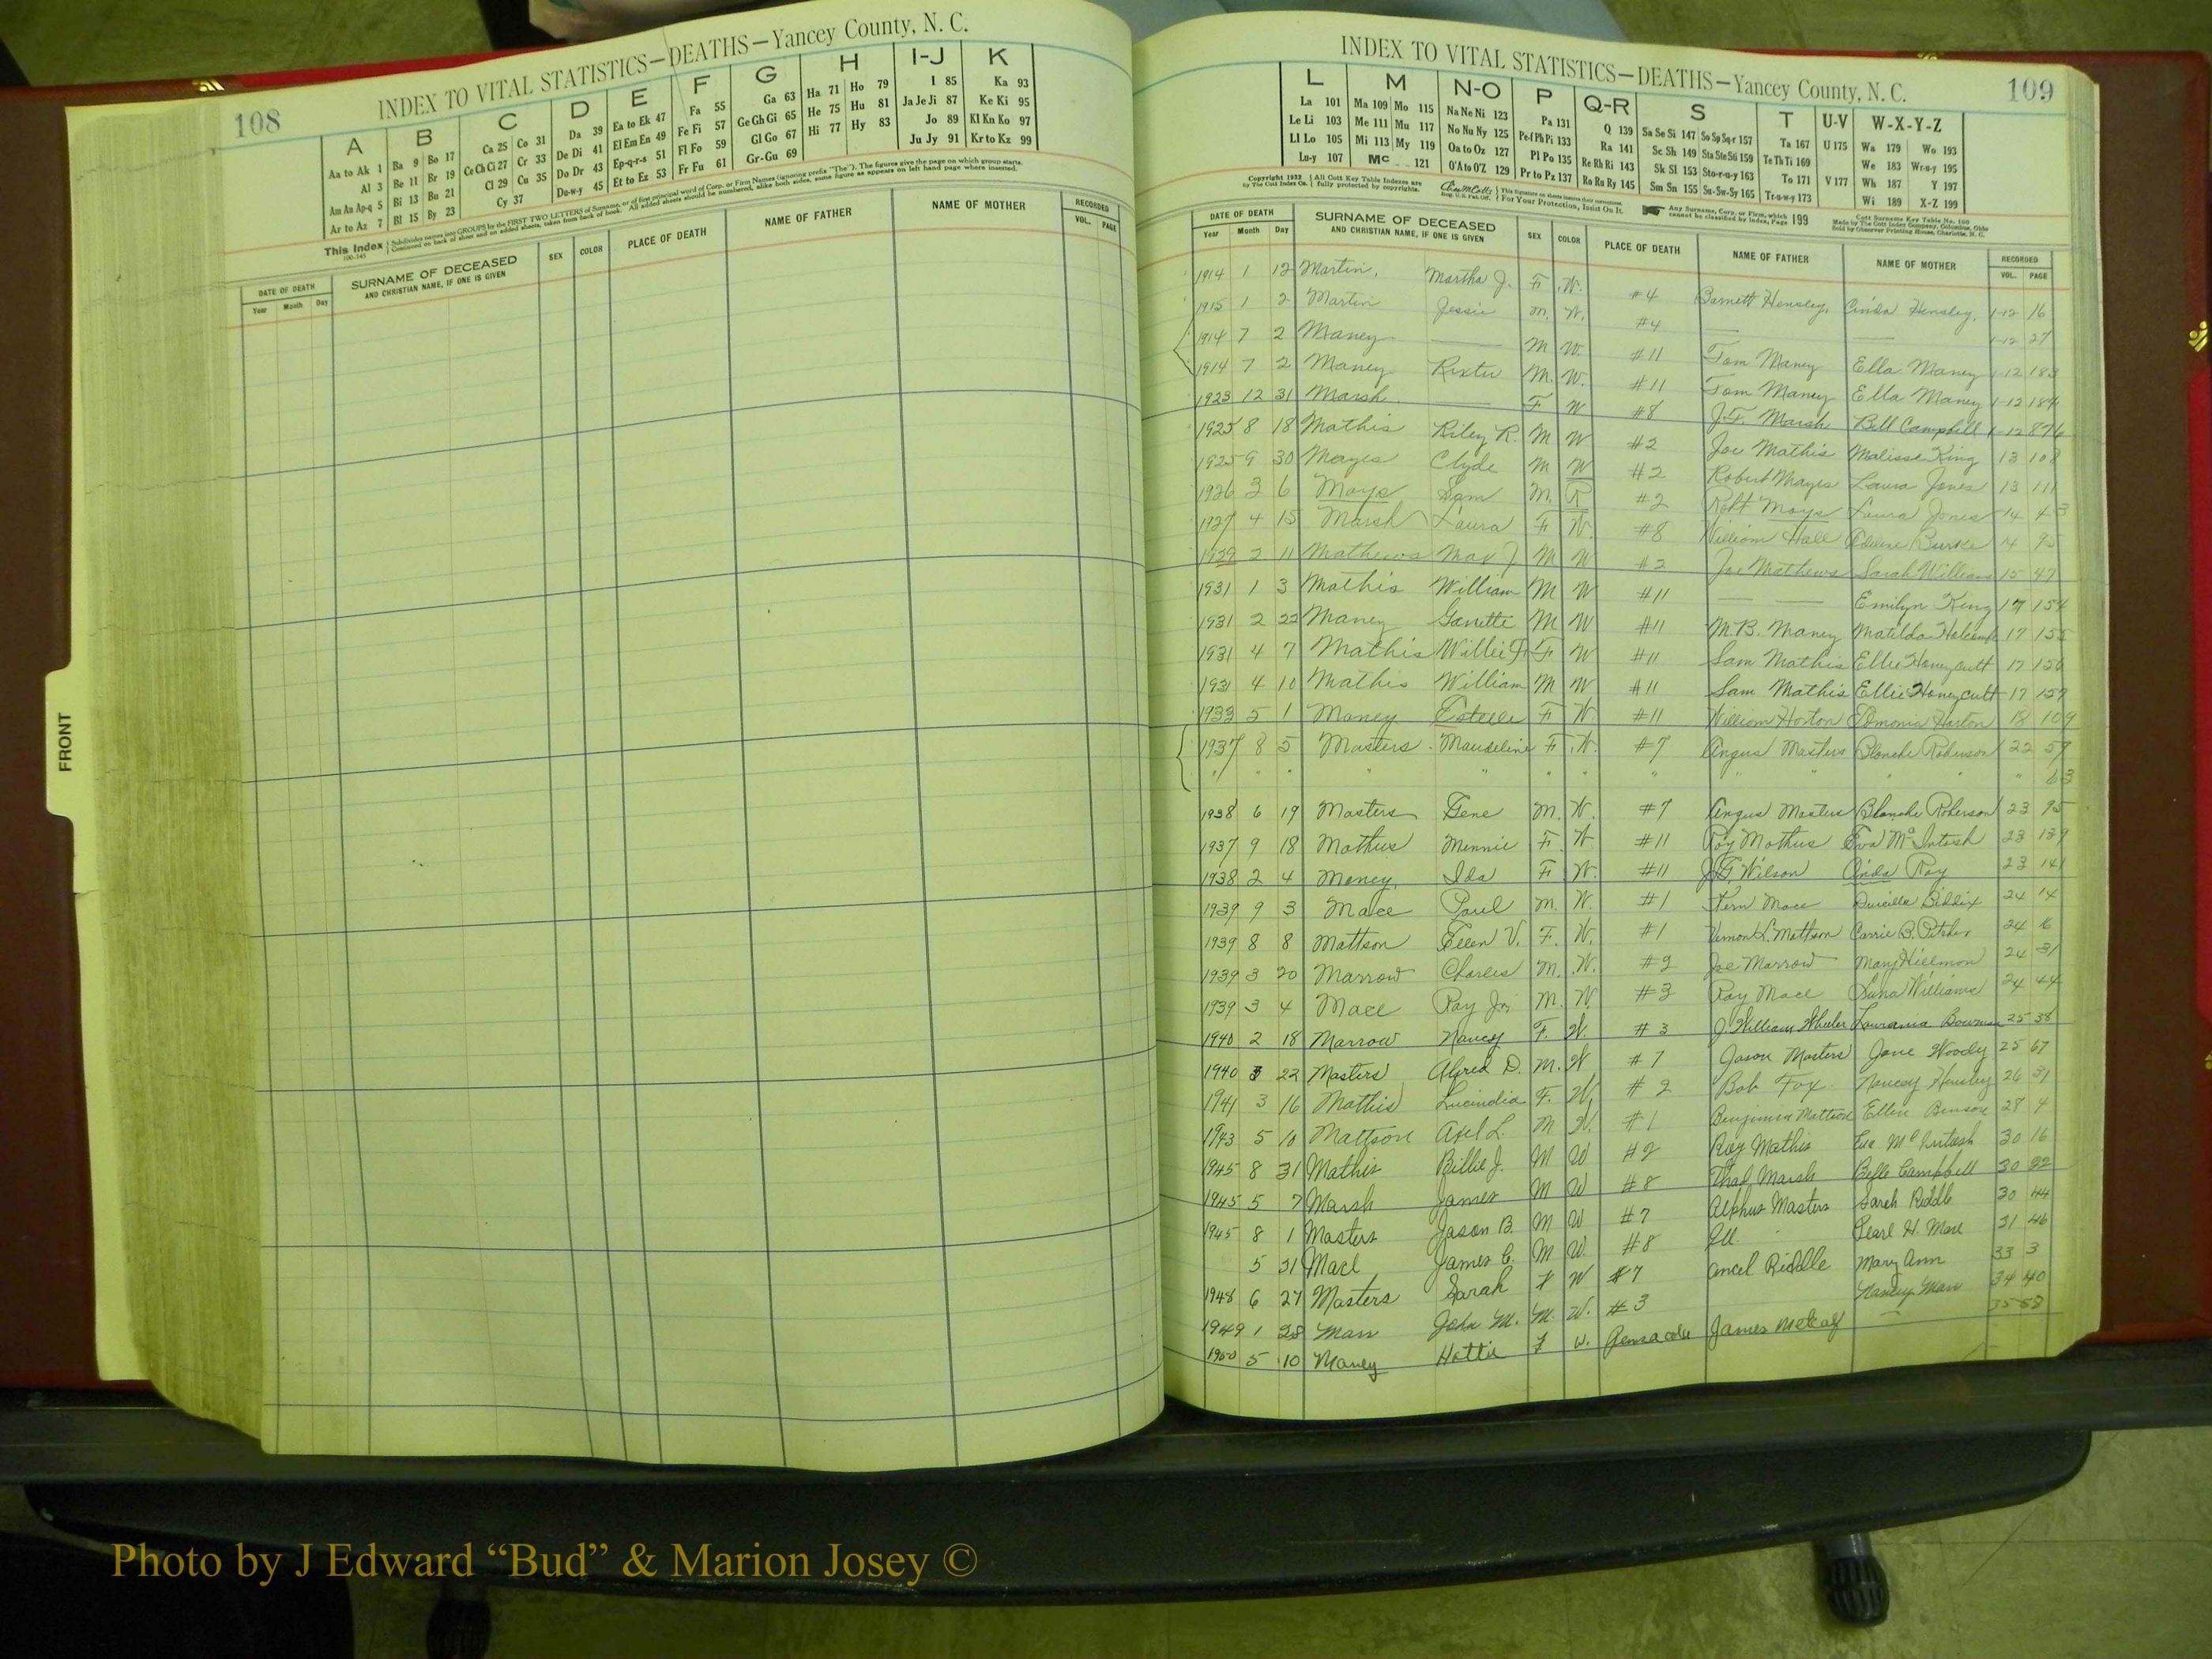 108
INDEX TO VITAL STATISTICS—DEATHS—Yancey County, N. C.
A B C D E F G H I-J K
Aa to Ak 1 Ba 9 Bo 17 Ca 25 Co 31 Da 39 Ea to Ek 47 Fa 55 Ga 63 Ha 71 Ho 79 I 85 Ka 93
Al 3 Be 11 Br 19 Ce Ch Ci 27 Cr 33 De Di 41 El Em En 49 Fe Fi 57 Ge Gh Gi 65 He 75 Hu 81 Ja Je Ji 87 Ke Ki 95
Am An Ap-q 5 Bi 13 Bu 21 Cl 29 Cu 35 Do Dr 43 Ep-q-r-s 51 Fl Fo 59 Gl Go 67 Hi 77 Hy 83 Jo 89 Kl Kn Ko 97
Ar to Az 7 Bl 15 By 23 Cy 37 Du-w-y 45 Et to Ez 53 Fr Fu 61 Gr-Gu 69 Ju Jy 91 Kr to Kz 99
This Index
DATE OF DEATH SURNAME OF DECEASED AND CHRISTIAN NAME, IF ONE IS GIVEN SEX COLOR PLACE OF DEATH NAME OF FATHER NAME OF MOTHER RECORDED
Year Month Day VOL. PAGE
FRONT
INDEX TO VITAL STATISTICS—DEATHS—Yancey County, N. C.
109
L M N-O P Q-R S T U-V W-X-Y-Z
La 101 Ma 109 Mo 115 Na Ne Ni 123 Pa 131 Q 139 Sa Se Si 147 So Sp Sq-r 157 Ta 167 U 175 Wa 179 Wo 193
Le Li 103 Me 111 Mu 117 No Nu Ny 125 Pe-f Ph Pi 133 Ra 141 Sc Sh 149 Sta Ste Sti 159 Te Th Ti 169 We 183 Wr-u-y 195
Ll Lo 105 Mi 113 My 119 Oa to Oz 127 Pl Po 135 Re Rh Ri 143 Sk Sl 153 Sto-r-u-y 163 To 171 V 177 Wh 187 Y 197
Lu-y 107 Mc 121 O'A to O'Z 129 Pr to Pz 137 Ro Ru Ry 145 Sm Sn 155 Su-Sw-Sy 165 Tr-u-w-y 173 Wi 189 X-Z 199
Copyright 1932 All Cott Key Table Indexes are fully protected by copyrights.
For Your Protection, Insist On It.
Any Surname, Corp. or Firm, which cannot be classified by index, Page 199
DATE OF DEATH SURNAME OF DECEASED AND CHRISTIAN NAME, IF ONE IS GIVEN SEX COLOR PLACE OF DEATH NAME OF FATHER NAME OF MOTHER RECORDED
Year Month Day VOL. PAGE
1914 1 12 Martin, Martha J. F. W. #4 Barnett Hensley, Cinda Hensley, 1-12 16
1915 1 2 Martin Jessie M. W. #4 — — 1-12 27
1914 7 2 Maney — M W. #11 Tom Maney Ella Maney 1-12 183
1914 7 2 Maney Rixter M. W. #11 Tom Maney Ella Maney 1-12 184
1923 12 31 Marsh — F W #8 J.F. Marsh Bell Campbell 1-12 876
1925 8 18 Mathis Riley R. M W #2 Joe Mathis Malissa King 13 108
1925 9 30 Mayes Clyde M W #2 Robert Mayes Laura Jones 13 111
1926 3 6 Mays Sam M. #2 Robt Mays Laura Jones 14 43
1927 4 15 Marsh Laura F. W. #8 William Hall Burke 14 95
1929 2 11 Mathews Max J M W #2 Joe Mathews Sarah Williams 15 47
1931 1 3 Mathis William M W #11 — — Emilyn King 17 154
1931 2 22 Maney Garrette M W #11 M.B. Maney Matilda Holcomb 17 155
1931 4 7 Mathis Willie F. F W #11 Sam Mathis Ellie Honeycutt 17 156
1931 4 10 Mathis William M W #11 Sam Mathis Ellie Honeycutt 17 157
1933 5 1 Maney Estelle F W #11 William Horton Edmonia Horton 18 109
1937 8 5 Masters Maudeline F. W. #7 Angus Masters Blanche Roberson 22 57
" " " " " " " " " " " 63
1938 6 19 Masters Gene M. W. #7 Angus Masters Blanche Roberson 23 95
1937 9 18 Mathus Minnie F. W #11 Roy Mathus Eva McIntosh 23 139
1938 2 4 Maney, Ida F. W. #11 J.F. Wilson Cinda Ray 23 141
1939 9 3 Mace Paul M. W. #1 Kern Mace Biddix 24 14
1939 8 8 Mattson Ellen V. F. W. #1 Vernon L. Mattson Carrie B. 24
1939 3 20 Marrow Charles M. W. #2 Joe Marrow Mary Hillmon 24 31
1939 3 4 Mace Ray Jr. M. W. #3 Ray Mace Williams 24 44
1940 2 18 Marrow Nancy F. W. #3 J. William Wheeler Laurania Bowman 25 38
1940 22 Masters Alfred D. M. W #7 Jason Masters Jane Woody 25 67
1941 3 16 Mathis Lucindia F. W. #2 Bob Fox Nancy Hensley 26 31
1943 5 10 Mattson Axel L. M W. #1 Benjimen Mattson Ellin Benson 28 4
1945 8 31 Mathis Billie J. M W #2 Roy Mathis Eva McIntosh 30 16
1945 5 7 Marsh James M W #8 Thad Marsh Belle Campbell 30 32
1945 8 1 Masters Jason B. M W #7 Alphus Masters Sarah Riddle 30 44
5 31 Mace James C. M W. #8 Ill. Pearl H. Mace 31 46
1948 6 27 Masters Sarah F W #7 Ancel Riddle Mary Ann 33 3
1949 1 28 Man John M. M. W. #3 Nancy Man 34 40
1950 5 10 Maney Hattie F W. Pensacola James Metcalf — 35 58
Photo by J Edward “Bud” & Marion Josey ©